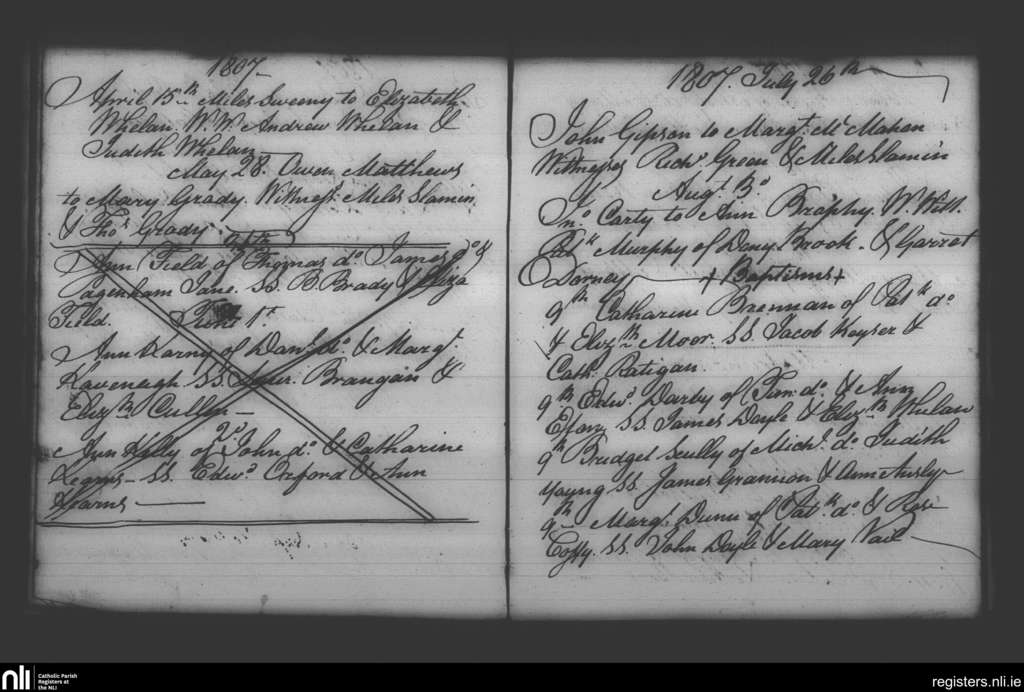 1807
April 15th Miles Sweeny to Elizabeth
Whelan. W.W. Andrew Whelan &
Judith Whelan
May 28. Owen Matthews
to Mary Grady. Witness. Miles Slamin
& Thos. Grady
Ann Field of Thomas do. James
Pagenham Jane. SS. B. Brady & Eliza
Field. June 1st
Ann Karny of Danl. do. & Margt.
Kavenaugh SS. Brangan &
Elizth Cullen
2d
Ann Kelly of John do. & Catharine
Kearns - SS. Edwd. Orford & Ann
Kearns
1807. July 26th
John Gipson to Margt. McMahon
Witnesses Richd. Green & Miles Slamin
Augt. 3d
Jno. Carty to Ann Brophy. W. Will.
Patk Murphy of Dony Brook. & Garret
Dorney + Baptisms +
9th Catharine Brennan of Patk do.
& Elizth Moor. SS. Jacob Keyser &
Cath. Ratigan.
9th Edwd. Darby of do. & Ann
Egan SS. James Doyle & Elizth Whelan
9th Bridget Scully of Michl. do. Judith
Young SS. James Grannon & Ann
9th Margt. Dunn of Patk do. & Rose
Coffy. SS. John Doyle & Mary
nli
Catholic Parish
Registers at
the NLI
registers.nli.ie